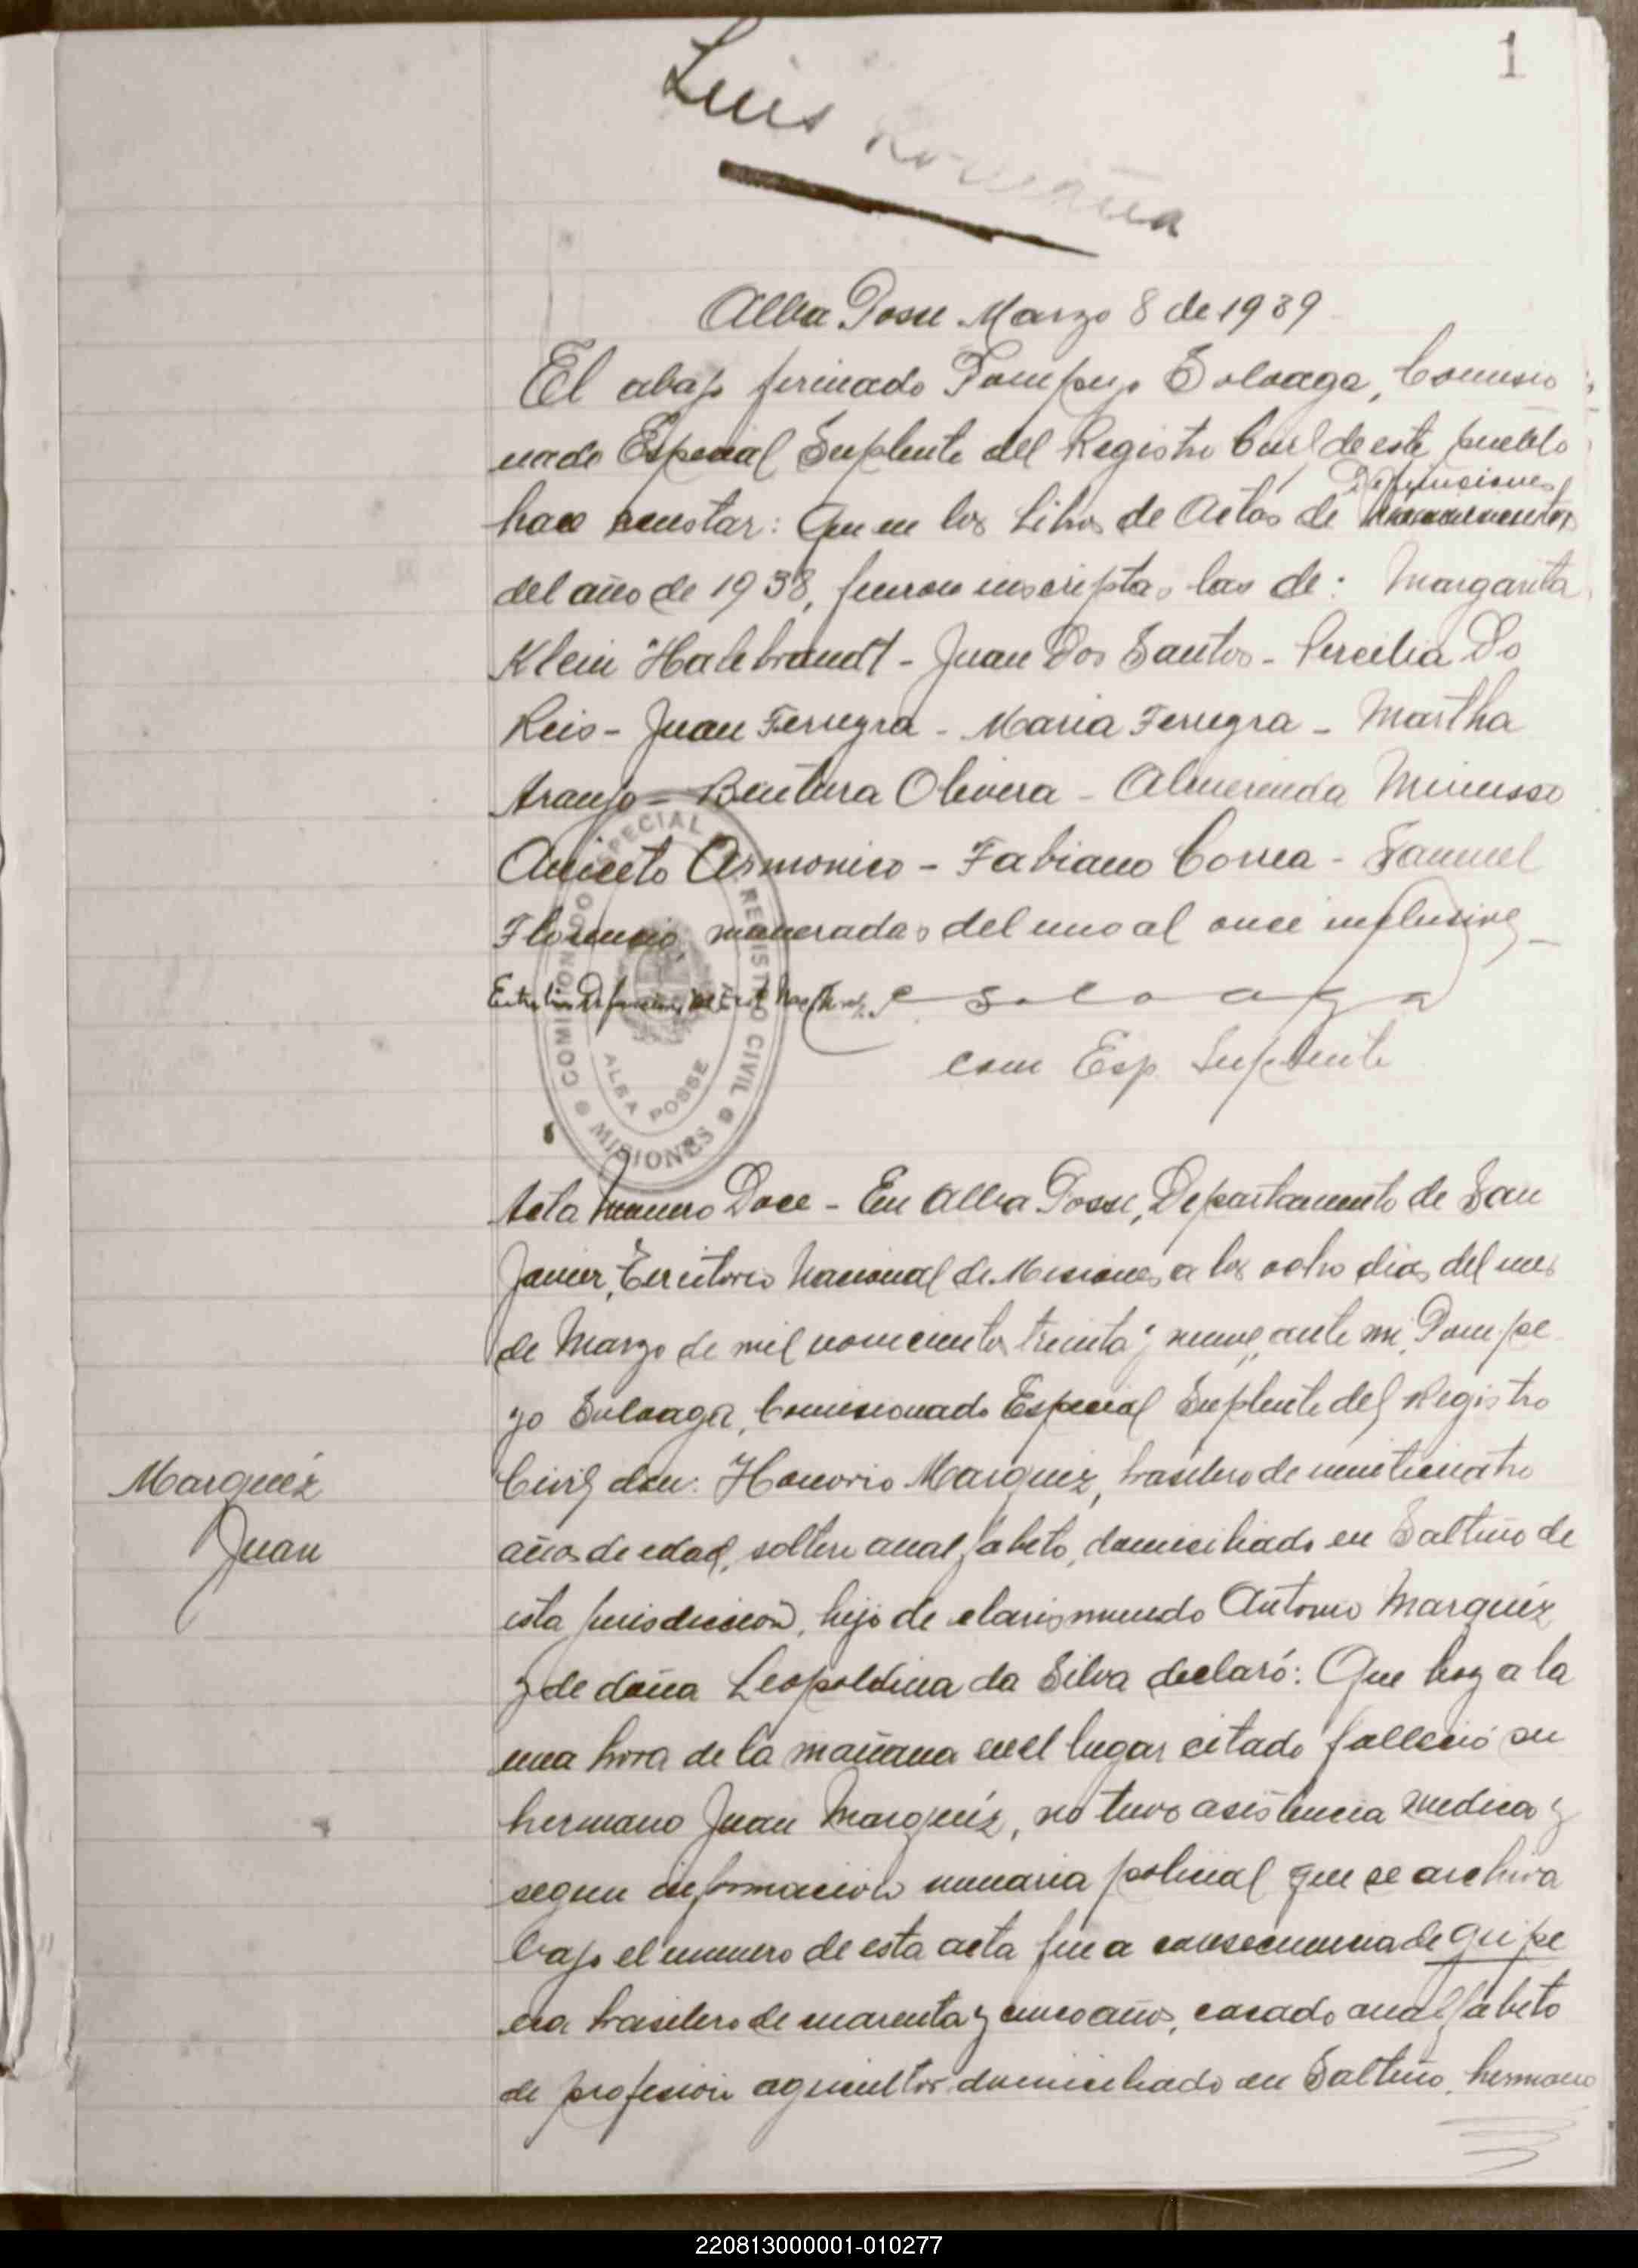 1
Luis Romaña
Alba Posse Marzo 8 de 1939
El abajo firmado Pompeyo Soloaga, Comisio
nado Especial Suplente del Registro Civil de este pueblo
Defunciones
hace constar: Que en los Libros de Actas de Nacimientos
del año de 1938, fueron inscriptas las de: Margarita
Klein Halebrandt - Juan Dos Santos - Cercilia Do
Reis - Juan Ferreyra - Maria Ferreyra - Martha
Araujo - Bentura Olivera - Almerinda Minusso
Aniceto Armonico - Fabiano Correa - Samuel
Florencio numeradas del uno al once inclusive
Entre lineas Defunciones
P Soloaga
com Esp. Suplente
COMISIONADO ESPECIAL REGISTRO CIVIL
ALBA POSSE
MISIONES
Acta numero Doce - En Alba Posse, Departamento de San
Javier, Territorio Nacional de Misiones, a los ocho dias del mes
de Marzo de mil novecientos treinta y nueve, ante mi, Pompe
yo Soloaga, Comisionado Especial Suplente del Registro
Civil don: Honorio Marquez, brasilero de veinticuatro
años de edad, soltero analfabeto, domiciliado en Saltiño de
esta jurisdiccion, hijo de clarismundo Antonio Marquéz
y de doña Leopoldina da Silva declaró: Que hoy a la
una hora de la mañana en el lugar citado falleció su
hermano Juan Marquéz, no tuvo asistencia medica y
segun informacion sumaria policial que se archiva
bajo el numero de esta acta fue a consecuencia de gripe
era brasilero de cuarenta y cinco años, casado analfabeto
de profesion agricultor domiciliado en Saltiño, hermano
Marquéz
Juan
220813000001-010277